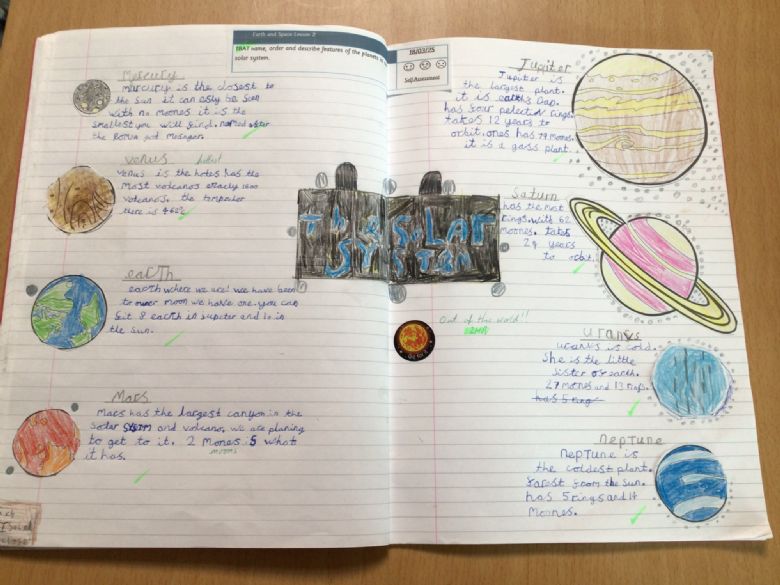 Earth and Space Lesson 2
IBAT name, order and describe features of the planets in
solar system.
Mercury
Mercury is the closest to
the sun it can esly be seen
with no moones it is the
smallest you will find. named after
the Roman god
Venus
hottest
Venus is the hotes has the
most volcanos
volcanos. the
there is 462°c
earth
earth where we are! we have been
to ouer moon we have one. you can
fit 8 earth in Jupeter and 10 in
the sun.
Mars
Mars has the largest canyon in the
Solar and volcano, we are planing
to get to it. 2 Mones is what
moons
it has.
18/03/25
Self Assessment
the SOLAR
SYSTEM
Jupiter
Jupiter is
the largest plant.
it is earths Dad.
has four rings.
takes 12 years to
orbit. ones has 79 Moones.
it is a gass plant.
Saturn
has the most
rings. with 62
Moones. takes
29 years
to orbit.
Out of this world!!
Uranus
uranus is cold.
She is the little
sister of earth.
27 Mones and 13 rings.
has 5 ring
Neptune
Neptune is
the coldest plant.
farest from the sun.
has 5 rings and 14
Moones.